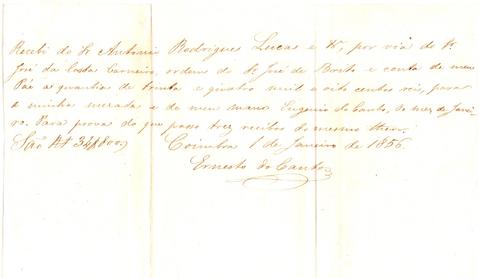 Recebi do Sr Antonio Rodrigues Lucas e Ca, por via do Sr.
José da Costa Carneiro, ordem do Sr José de Brito e conta de meu
Pae a quantia de trinta e quatro mil e oito centos reis, para
a minha mezada e de meu mano Eugenio do Canto, do mez de Janei-
ro. Para prova do que passo tres recibos do mesmo theor.
São Rs 34$800.
Coimbra 1 de Janeiro de 1856
Ernesto do Canto